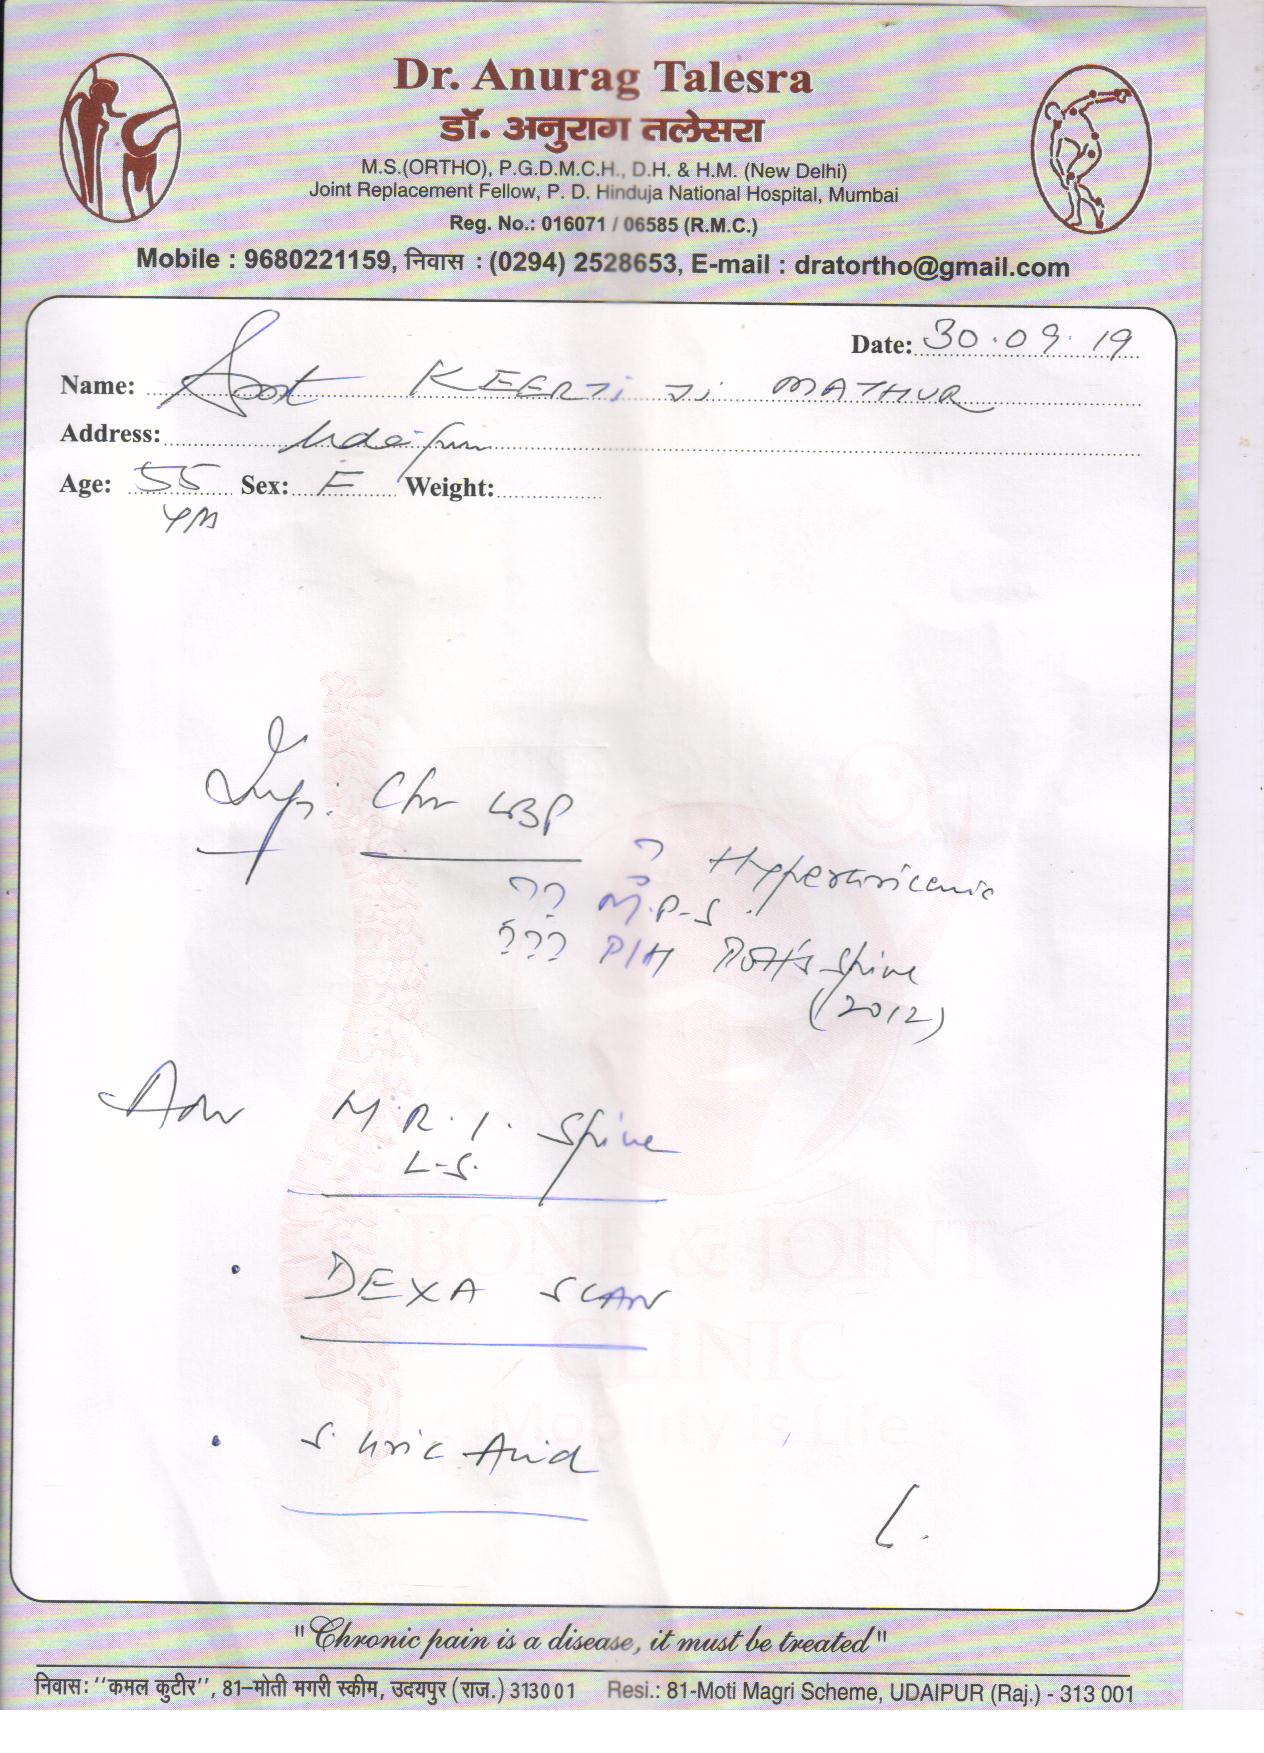 Dr. Anurag Talesra
डॉ. अनुराग तलेसरा
M.S.(ORTHO), P.G.D.M.C.H., D.H. & H.M. (New Delhi)
Joint Replacement Fellow, P. D. Hinduja National Hospital, Mumbai
Reg. No.: 016071 / 06585 (R.M.C.)
Mobile : 9680221159, निवास : (0294) 2528653, E-mail : dratortho@gmail.com
Date: 30.09.19
Name: Smt KEERTI Ji MATHUR
Address: Udaipur
Age: 55 Sex: F Weight:
Imp: Chr LBP
? Hyperuricemia
?? M.P.S.
??? P/H Pott's Spine
(2012)
Adv M.R.I. Spine
L-S.
• DEXA SCAN
• S. Uric Acid
BONE & JOINT
CLINIC
Mobility is Life
"Chronic pain is a disease, it must be treated"
निवास: ''कमल कुटीर'', 81–मोती मगरी स्कीम, उदयपुर (राज.) 313001 Resi.: 81-Moti Magri Scheme, UDAIPUR (Raj.) - 313 001